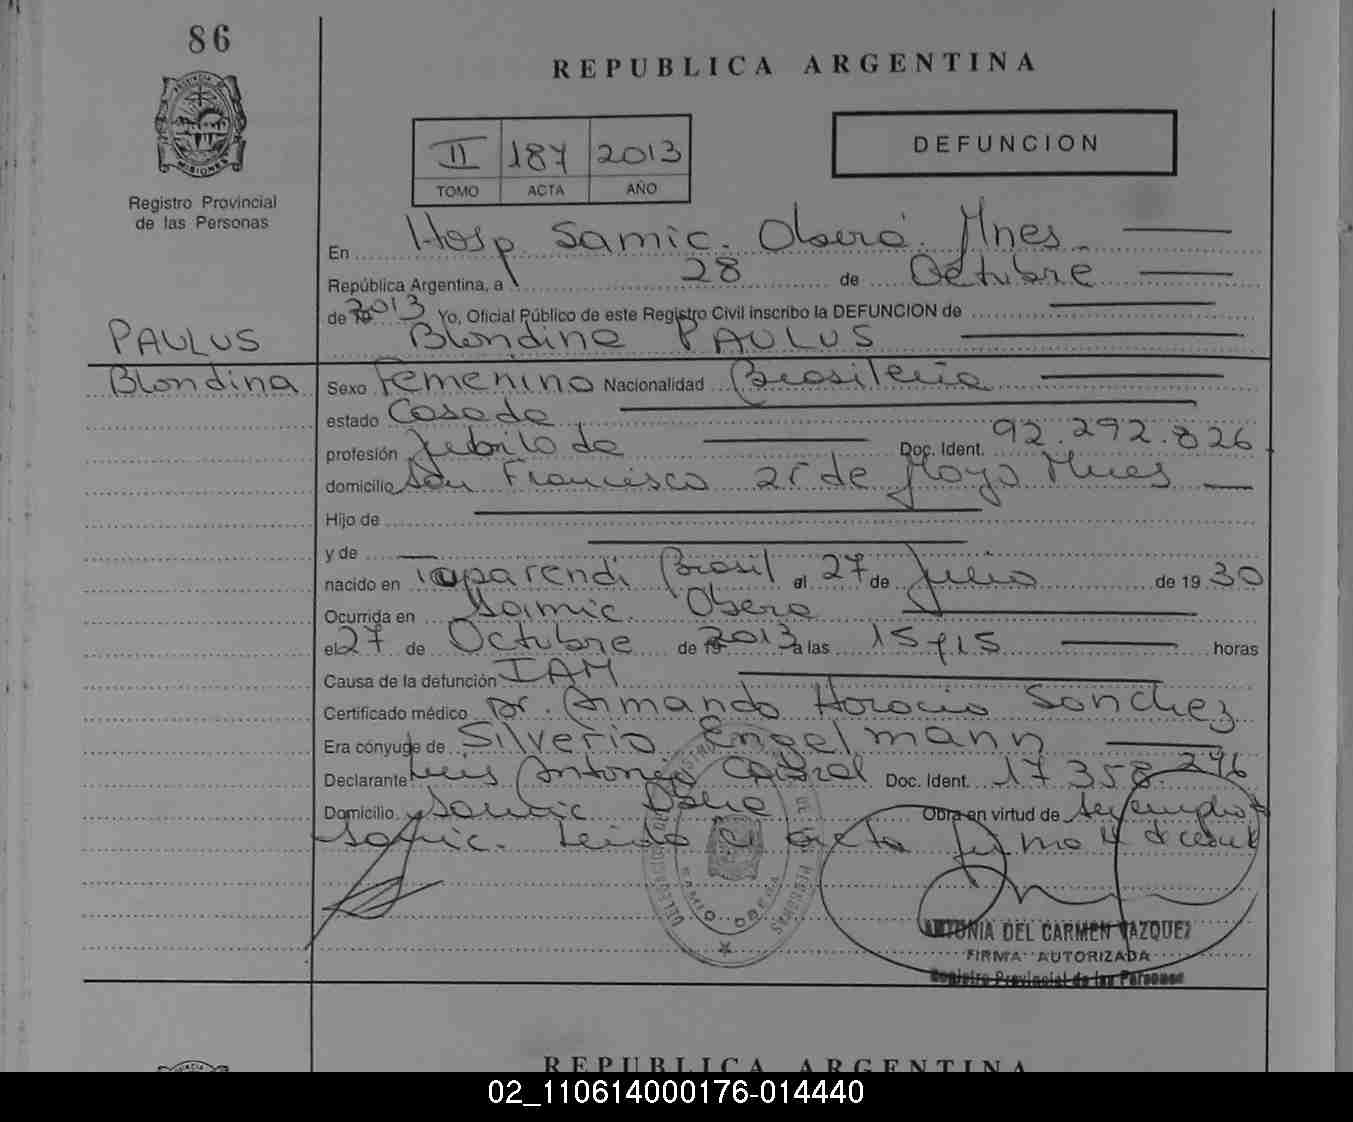 86
REPUBLICA ARGENTINA
PROVINCIA DE MISIONES
Registro Provincial
de las Personas
II 187 2013
TOMO ACTA AÑO
DEFUNCION
En Hosp. Samic. Oberá. Mnes.
República Argentina, a 28 de Octubre
de 2013 Yo, Oficial Público de este Registro Civil inscribo la DEFUNCION de
PAULUS Blondina PAULUS
Blondina
Sexo Femenino Nacionalidad Brasileria
estado Casada
profesión Jubilada Doc. Ident. 92.292.826
domicilio San Francisco 25 de Mayo Mnes
Hijo de
y de
nacido en Brasil el 27 de Junio de 1930
Ocurrida en Samic Obera
el 27 de Octubre de 2013 a las 15 y 15 horas
Causa de la defunción IAM
Certificado médico Dr. Armando Horacio Sanchez
Era cónyuge de Silverio Engelmann
Declarante Luis Antonio Cabral Doc. Ident. 17.358.296
Domicilio Samic Obera Obra en virtud de
Samic. Leida el acta firma
SAMIC OBERA
ANTONIA DEL CARMEN VAZQUEZ
FIRMA AUTORIZADA
Registro Provincial de las Personas
REPUBLICA ARGENTINA
02_110614000176-014440